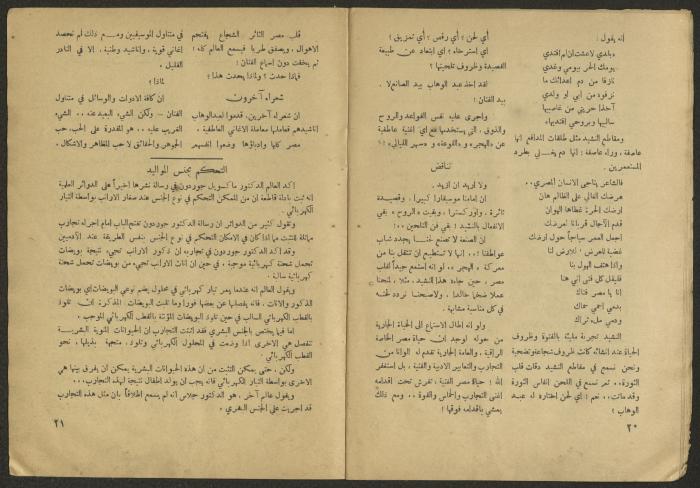 انه يقول :
«بلدي لاعشت ان لم افتدي
يومك الحر بيومي وغدي
نازفا من دم اعدائك ما
نزفوه من ابي او ولدي
آخذا حريتي من غاصبيها
سالبيها وبروحي افتديها»
ومقاطع النشيد مثل طلقات المدافع انها
عاصفة ، وراء عاصفة : انها دم يغــلي يطرد
المستعمرين .
فالشاعر يناجي الانسان المصري..
عرضك الغالي على الظالم هان
ارضك الحرة غطاها الهوان
قدم الآجال قربانا لعرضك
اجعل العمر سياجاً حول ارضك
غضبة للعرض . للارض لنا
واذا هتف الهول بنا
فليقل كل فتى اني هنا
انا يا مصر فتاك
بدمي احمي حماك
ودمي ملء ثراك
النشيد تجربة مليئة بالفتوة وظروف
الحياة عند انشائه كانت ظروف شجاعة وتضحية
ونحن نسمع في مقاطع النشيد دقات قلب
الثورة. ثم نسمع في اللحن انفاس الثورة
وقد ماتت.. نعم : اي لحن اختاره له عبد
الوهاب ؟
٢٠
أي لحن ؛ أي رقص ؛ أي تمزيق ؟
اي استرخاء ؛ اي ابتعاد عن طبيعة
القصيدة وظروف تلحينها ؟
لقد اخذ عبد الوهاب بيد الصانع لا .
بيد الفنان !
واجرى عليه نفس القواعد والروح
والذوق . التي يستخدمها مع اي اغنية عاطفية
عن «الهجر» و«اللوعة» و«سهر الليالي» !
تناقض
ولا اريد ان ازيد .
ان امامنا موسيقارا كبيرا ، وقصيدة
ثائرة ، واوركسترا ، وبقيت «الروح» بقي
الانفعال بالنشيد ! بقي فن التلحين ..!
ان الصنعة لا تصنع لحنا يجدد شباب
عواطفنا !.. انها لا تستطيع ان تنتقل بنا من
معركة «الهجر» ، لو انه استمع جيداً لقلب
مصر ، حين جاءه هذا النشيد ، مثلا ، لمنحنا
عملا ضخما خالدا ، ولاصبحنا نردد لحنه
في كل مناسبة مشابهة .
ولو انه اطال الاستماع الى الحياة الجارية
من حوله لوجد ان حياة مصر الخاصة
الراقية ، والعامة الجارية تقدم له الوانا من
التجارب والتعابير الادبية والفنية ، بل استغفر
الله ! حياة مصر الفنية ، تفرش تحت اقدامه
اغنى التجارب والحماس والقوة .. ومع ذلك
يمشي باقدامه فوقها !
قلب مصر الثائر الشجاع يقتحم
الاهوال ، ويصفق طربا فيسمع العالم كله ؛
ثم يخفت دون اسماع الفنان !
فماذا حدث ؟ ولماذا يحدث هذا ؟
شعراء آخرون
ان شعراء آخرين ، قدموا لعبد الوهاب
اناشيدهم فعاملها معاملة الاغاني العاطفية .
مصر كلها وادباؤها وضعوا انفسهم
في متناول الموسيقيين ومــع ذلك لم نحصد
اغاني قوية ، واناشيد وطنية ، الا في النادر
القليل .
لماذا ؟
ان كافة الادوات والوسائل في متناول
الفنان – ولكن الشيء البعيد عنه .. الشيء
القريب عليه .. هو المقدرة على الحب ، حب
الجوهر والحقائق لا حب المظاهر والاشكال .
التحكم بجنس المواليد
اكد العالم الدكتور ماكسويل جوردون في رسالة نشرها اخيراً على الدوائر العلمية
انه ثبت بادلة قاطعة ان من الممكن التحكم في نوع الجنس عند صغار الارانب بواسطة التيار
الكهربائي .
وتقول كثير من الدوائر ان رسالة الدكتور جوردون تفتح الباب امام اجراء تجارب
مماثلة للتثبت مما اذا كان في الامكان التحكم في نوع الجنس بنفس الطريقة عند الآدميين
وقد اكد الدكتور جوردون في تجاربه ان ذكور الارانب تجيء نتيجة بويضات
تحمل شحنة كهربائية موجبة ، في حين ان اناث الارانب تجيء من بويضات تحمل شحنة
كهربائية سالبة .
ويقول العالم انه عندما يمرر تيار كهربائي في محلول يضم نوعي البويضات اي بويضات
الذكور والاناث . فانه يفصلها عن بعضها فورا وما تلبث البويضات المذكرة ان تلوذ
بالقطب الكهربائي السالب في حين تلوذ البويضات المؤنثة بالقطب الكهربائي الموجب .
اما فيما يختص بالجنس البشري فقد اثبتت التجارب ان الحيوانات المنوية البشريــة
تنفصل هي الاخرى اذا وضعت في المحلول الكهربائي وتلوذ ، متجهة بذيلها ، نحو
القطب الكهربائي .
ولكن ، حتى يمكن التثبت من ان هذه الحيوانات البشرية يمكن ان يفرق بينها هي
الاخرى بواسطة التيار الكهربائي فانه يجب ان يولد اطفال نتيجة لهذه التجارب...
ويقول عالم آخر ، هو الدكتور جلاس انه لم يسمع اطلاقاً بان مثل هذه التجارب
قد اجريت على الجنس البشري .
٢١